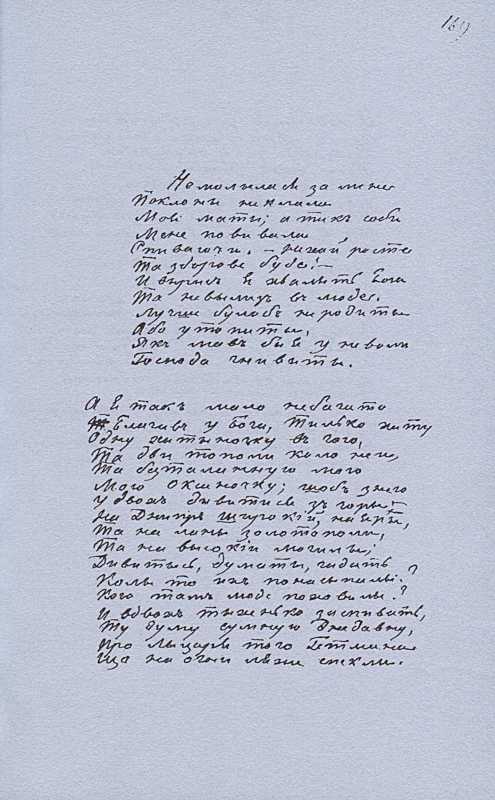 169
Не молылася за мене
Поклоны не клала
Моя маты; а такъ соби
Мене повывала
Спиваючи. — Нехай росте
Та здорове буде! —
И вырисъ я хвалыть Бога
Та не вылизъ въ люде.
Лучше булобъ не родыты
Або утопыты,
Якъ мавъ бы я у неволи
Господа гнивыты.
А я такъ мало небагато
Благавъ у Бога, тилько хату
Одну хатыночку въ гаю,
Та дви тополи коло неи,
Та безталанную мою
Мою Оксаночку; щобъ з нею
У двохъ дывытыся зъ горы
На Днипръ шырокій, на яры,
Та на ланы золотополи,
Та на высокіи могылы;
Дывытысь, думаты, гадать
Колы то ихъ понасыпалы?
Кого тамъ люде поховалы?
И вдвохъ тыхенько заспивать,
Ту думу сумную Днедавну,
Про лыцаря того Гетмана
Що на огни ляхы спеклы.